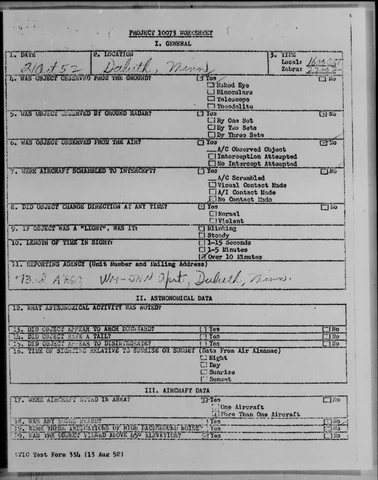 PROJECT 10073 WORKSHEET
I. GENERAL
1. DATE
2. LOCATION
3. TIME
Local:
Zebra:
Duluth, Minn.
4. WAS OBJECT OBSERVED FROM THE GROUND? Yes No
Naked Eye
Binoculars
Telescope
Theodolite
5. WAS OBJECT OBSERVED BY GROUND RADAR? Yes No
By One Set
By Two Sets
By Three Sets
6. WAS OBJECT OBSERVED FROM THE AIR? Yes No
A/C Observed Object
Interception Attempted
No Intercept Attempted
7. WERE AIRCRAFT SCRAMBLED TO INTERCEPT? Yes No
A/C Scrambled
Visual Contact Made
A/I Contact Made
No Contact Made
8. DID OBJECT CHANGE DIRECTION AT ANY TIME? Yes No
Normal
Violent
9. IF OBJECT WAS A "LIGHT", WAS IT: Blinking
Steady
10. LENGTH OF TIME IN SIGHT: 1-15 Seconds
1-5 Minutes
Over 10 Minutes
11. REPORTING AGENCY (Unit Number and Mailing Address)
Duluth, Minn.
II. ASTRONOMICAL DATA
12. WHAT ASTRONOMICAL ACTIVITY WAS NOTED?
13. DID OBJECT APPEAR TO ARCH DOWNWARD? Yes No
14. DID OBJECT HAVE A TAIL? Yes No
15. DID OBJECT APPEAR TO DISINTEGRATE? Yes No
16. TIME OF SIGHTING RELATIVE TO SUNRISE OR SUNSET (Data From Air Almanac)
Night
Day
Sunrise
Sunset
III. AIRCRAFT DATA
17. WERE AIRCRAFT NOTED IN AREA? Yes No
One Aircraft
More Than One Aircraft
18. WAS ANY SOUND HEARD? Yes No
19. WERE THERE INDICATIONS OF HIGH BACKGROUND NOISE? Yes No
WAS THE OBJECT VIEWED ABOVE 45° ELEVATION? Yes No
ATIC Test Form 334 (13 Aug 52)